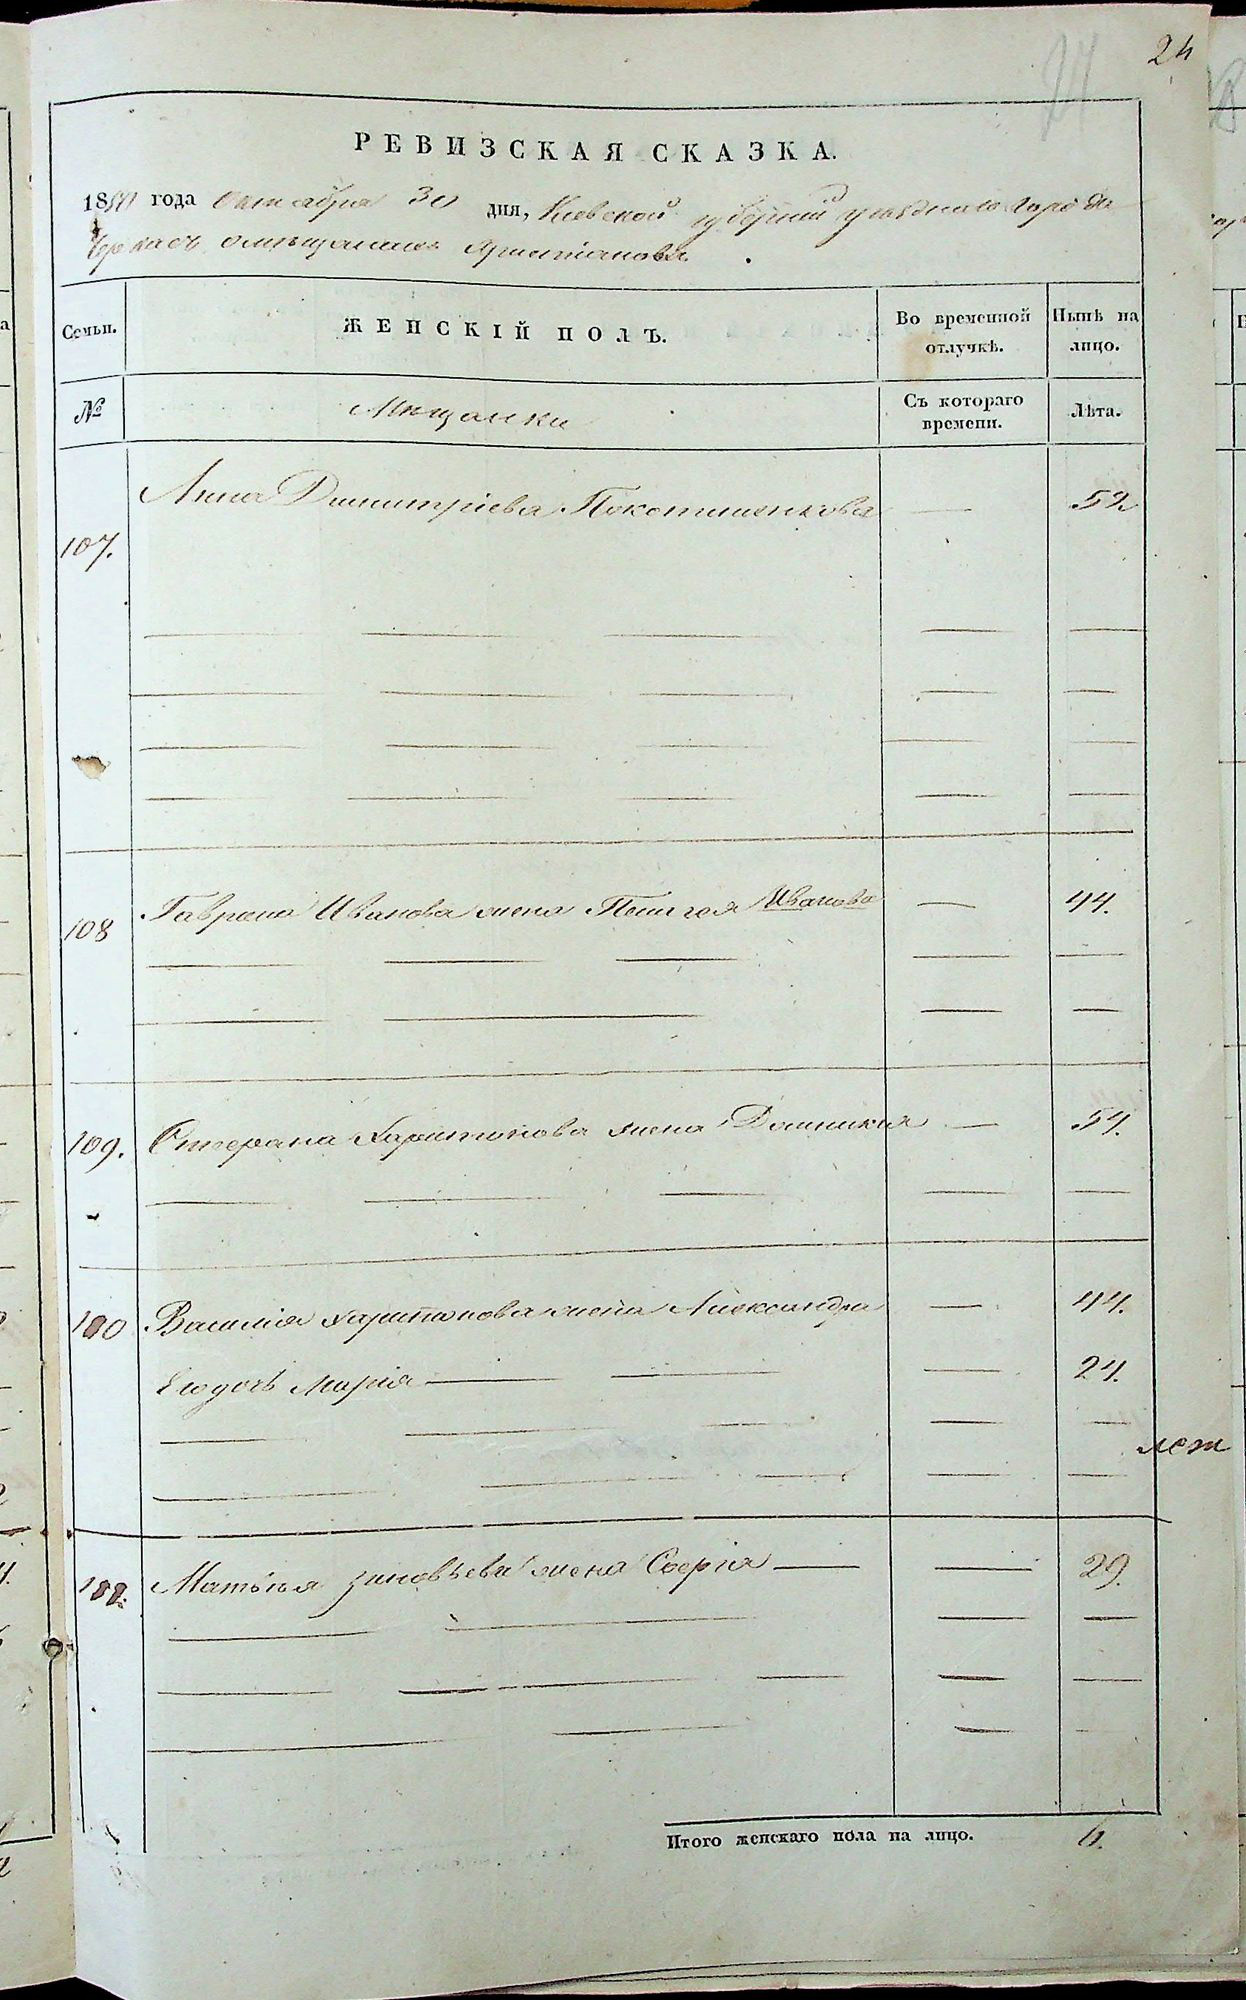 24
24
РЕВИЗСКАЯ СКАЗКА.
1850 года Октября 30 дня, Киевской губернии уезднаго города
Черкасъ омещанахъ христіанахъ.
Семьи.
ЖЕНСКІЙ ПОЛЪ.
Во временной отлучкѣ.
Нынѣ на лицо.
№
Мещанки
Съ котораго времени.
Лѣта.
107.
Анна Димитріева Покотиленкова — 52
108
Гаврона Иванова жена Пелагея Иванова — 44.
109.
Стефана Харитонова жена Домникия — 54.
Василия Харитонова жена Александра — 44.
Егодочь Мария — 24.
лет
Матвея Зиновьева жена Софія — 29.
Итого женскаго пола на лицо. 6.